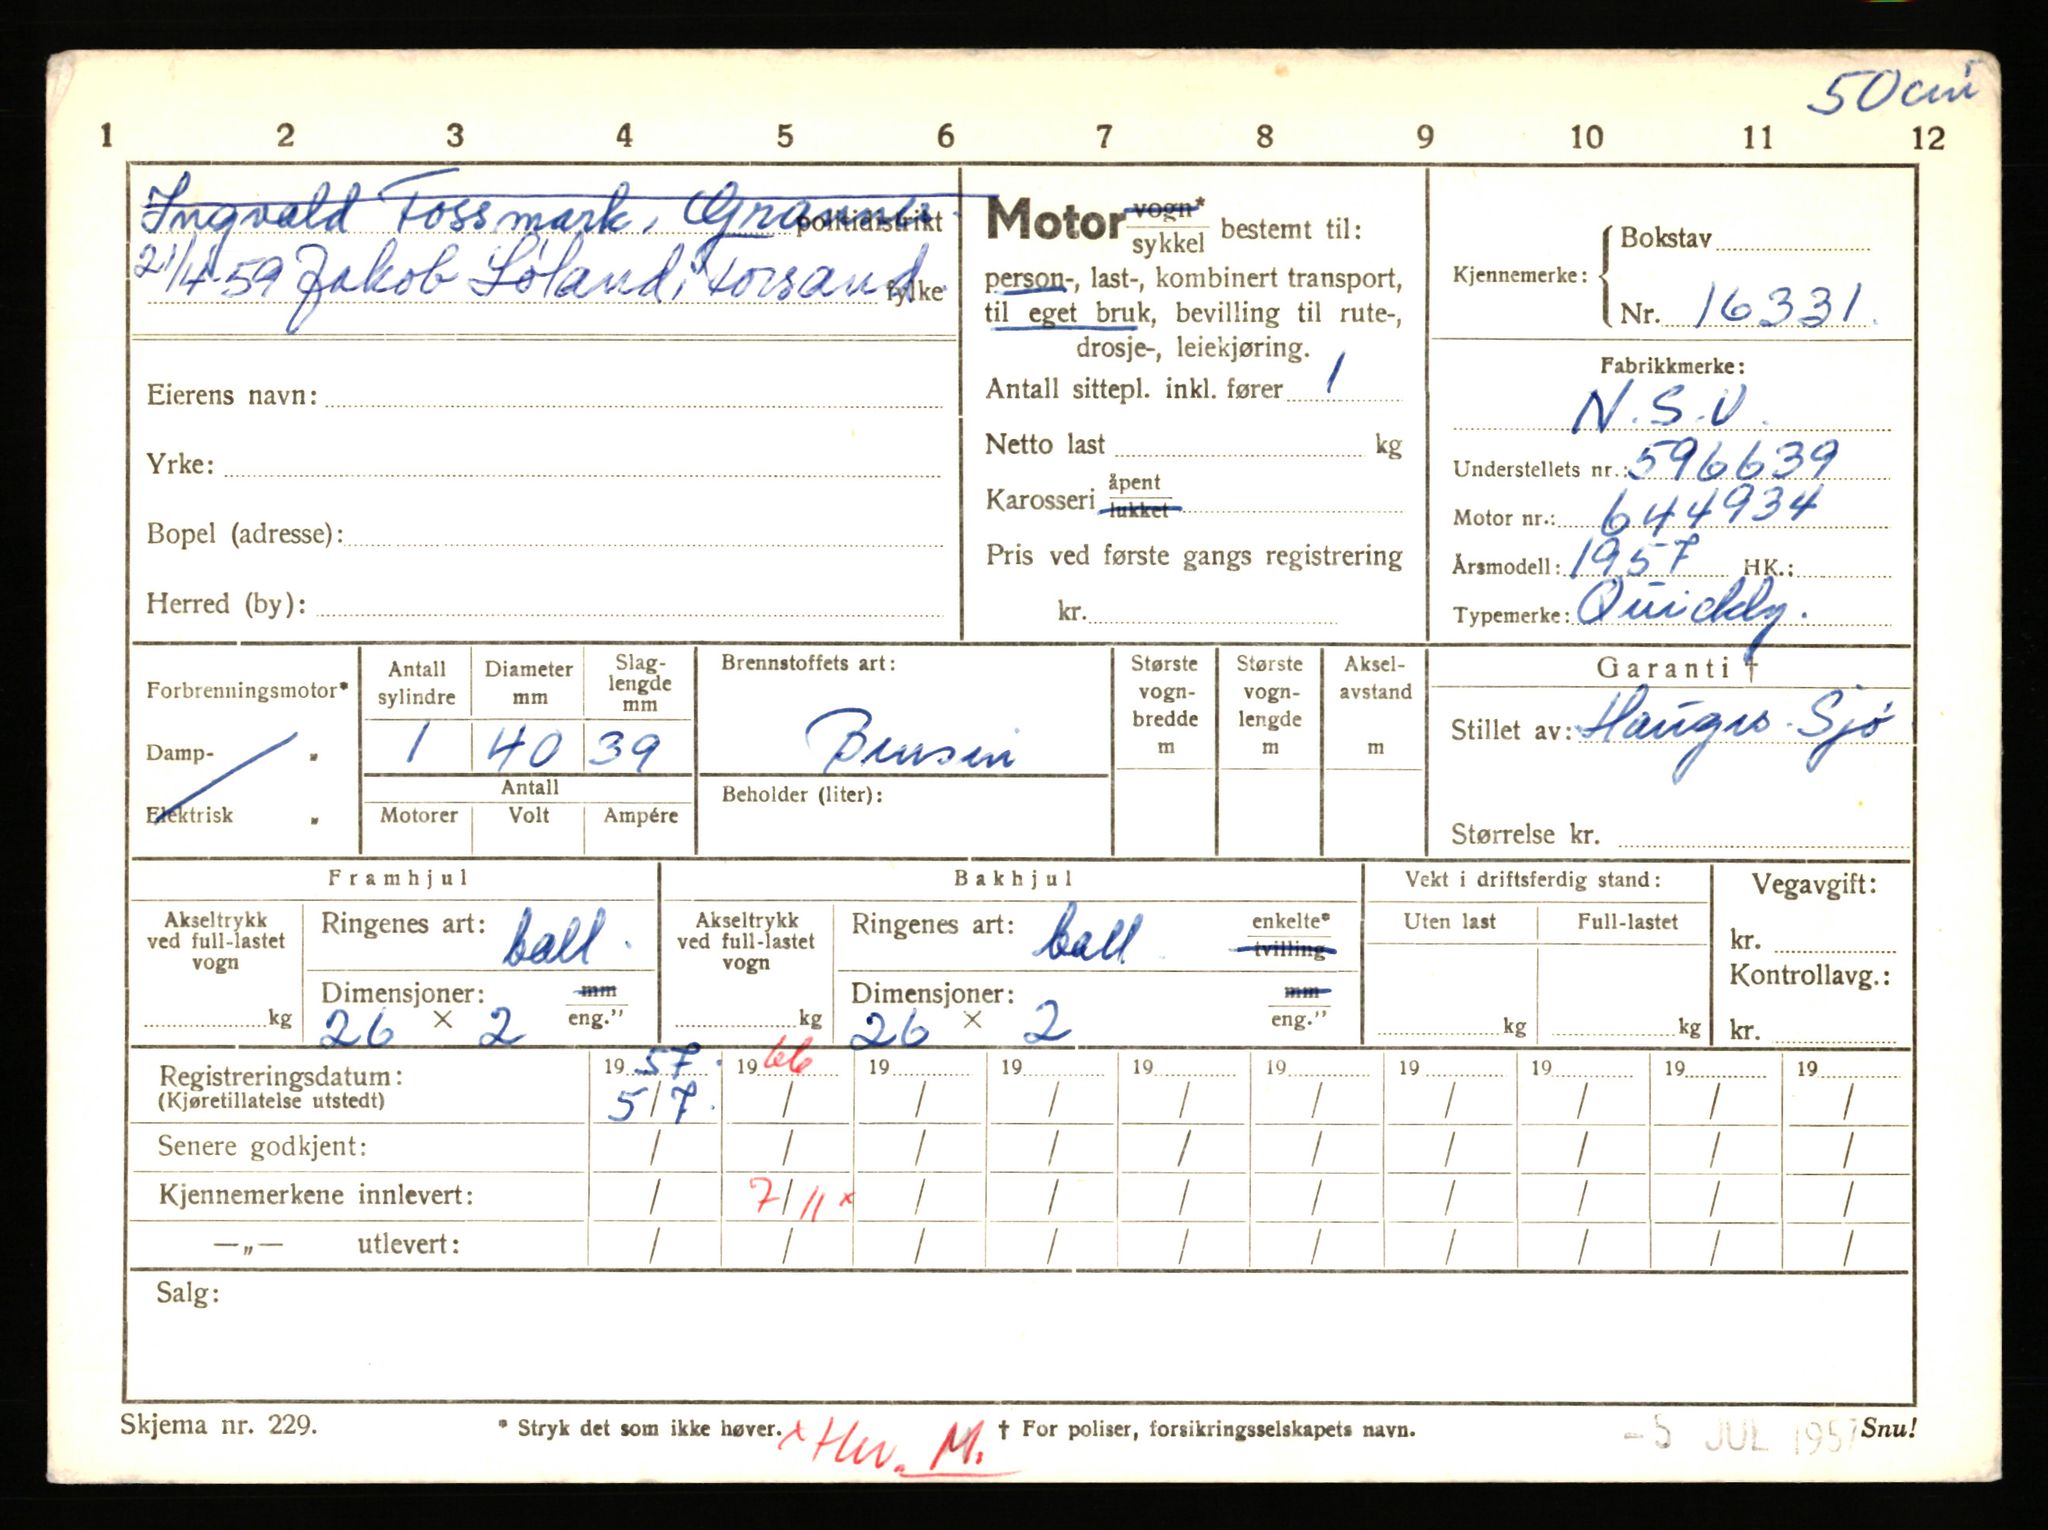 50 cm³
1 2 3 4 5 6 7 8 9 10 11 12
Ingvald Fossmark, politidistrikt
21/4-59 Jakob Løland, Forsand fylke
Eierens navn:
Yrke:
Bopel (adresse):
Herred (by):
Motor vogn* sykkel bestemt til:
person-, last-, kombinert transport,
til eget bruk, bevilling til rute-,
drosje-, leiekjøring.
Antall sittepl. inkl. fører 1
Netto last kg
Karosseri åpent lukket
Pris ved første gangs registrering
kr.
Kjennemerke: Bokstav
Nr. 16331.
Fabrikkmerke:
N.S.U.
Understellets nr.: 596639
Motor nr.: 644934
Årsmodell: 1957 HK.:
Typemerke: Quickly.
Forbrenningsmotor*
Damp- "
Elektrisk "
Antall sylindre
Diameter mm
Slag-lengde mm
1 40 39
Antall
Motorer Volt Ampére
Brennstoffets art:
Bensin
Beholder (liter):
Største vogn-bredde m
Største vogn-lengde m
Aksel-avstand m
Garanti †
Stillet av: Sjø
Størrelse kr.
Framhjul
Akseltrykk ved full-lastet vogn
kg
Ringenes art: ball.
Dimensjoner: mm eng."
26 × 2
Bakhjul
Akseltrykk ved full-lastet vogn
kg
Ringenes art: ball enkelte* tvilling
Dimensjoner: mm eng."
26 × 2
Vekt i driftsferdig stand:
Uten last Full-lastet
kg kg
Vegavgift:
kr.
Kontrollavg.:
kr.
Registreringsdatum: 19 57. 19 66 19 19 19 19 19 19 19 19
(Kjøretillatelse utstedt) 5/7. / / / / / / / / /
Senere godkjent: / / / / / / / / / /
Kjennemerkene innlevert: / 7/11 x / / / / / / / /
—„— utlevert: / / / / / / / / / /
Salg:
Skjema nr. 229. * Stryk det som ikke høver. x M. † For poliser, forsikringsselskapets navn. -5 JUL 1957 Snu!